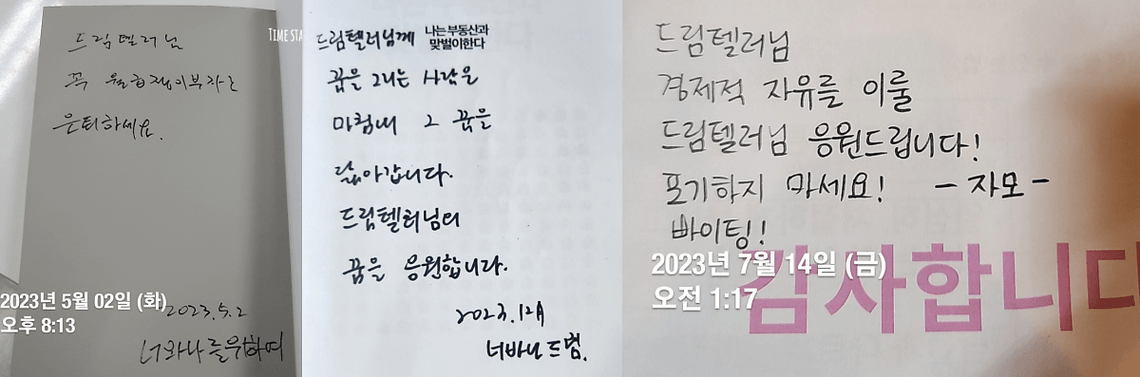 드림텔러님
꼭 월급쟁이부자로
은퇴하세요.
2023. 5. 2
너와나를위하여
2023년 5월 02일 (화)
오후 8:13
TIME STA
드림텔러님께
나는 부동산과
맞벌이한다
꿈을 그리는 사람은
마침내 그 꿈을
닮아갑니다.
드림텔러님의
꿈을 응원합니다.
2023. 12月
너바나 드림.
드림텔러님
경제적 자유를 이룰
드림텔러님 응원드립니다!
포기하지 마세요! - 자모 -
빠이팅!
2023년 7월 14일 (금)
오전 1:17
감사합니다